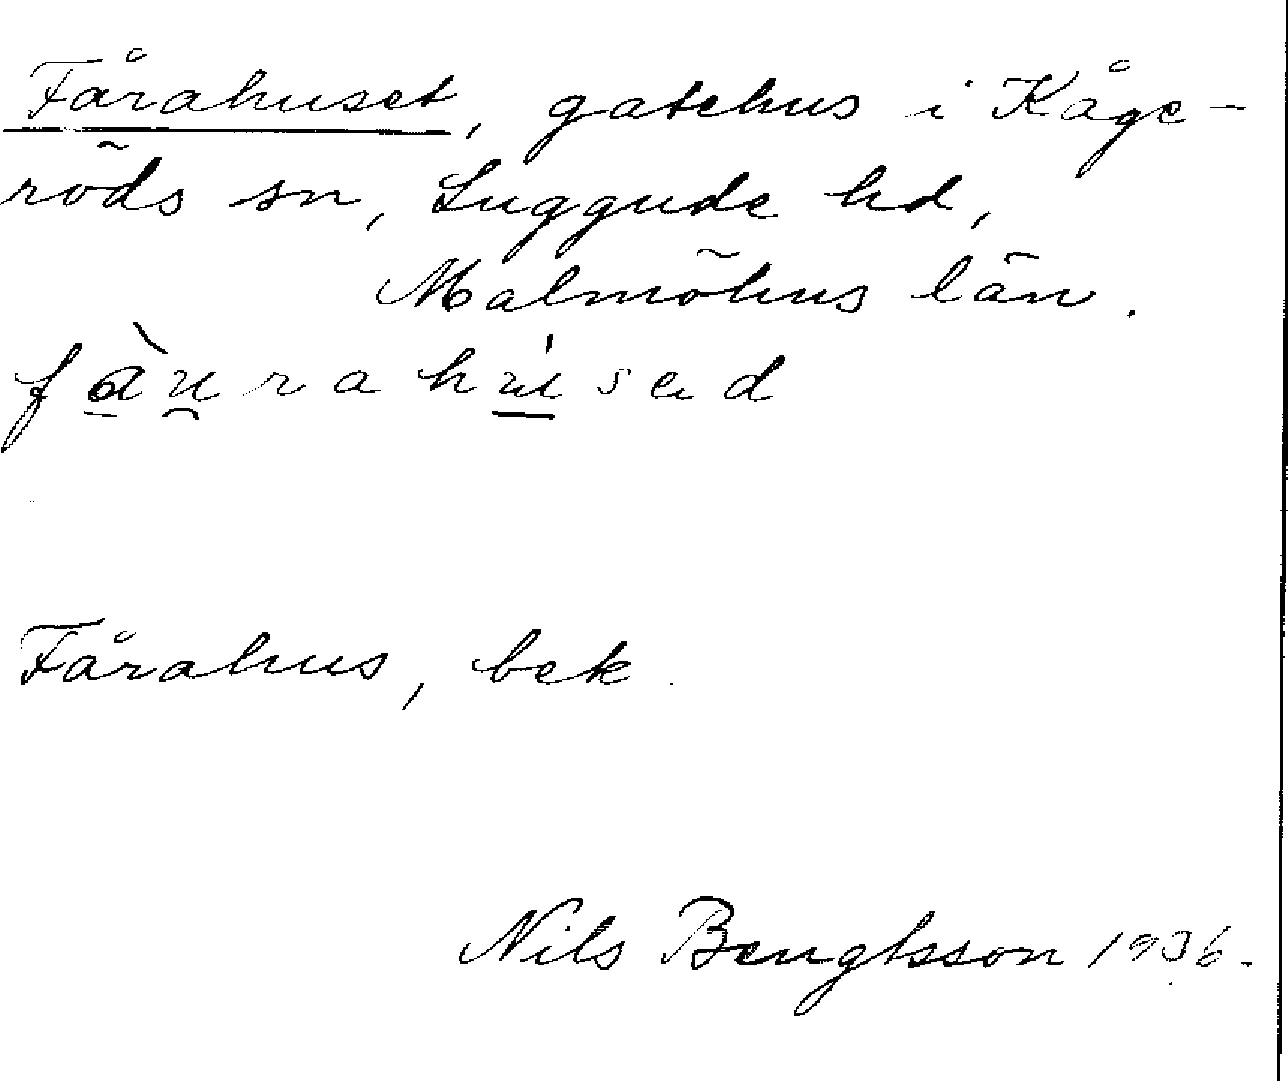 Fårahuset, gatehus i Kåge-
röds sn, Luggude hd,
Malmöhus län.
Fårahus, bek.
Nils Bengtsson 1936.